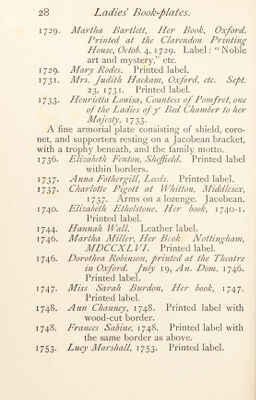 28 Ladies' Book-plates.
1729. Martha Bartlett, Her Book, Oxford.
Printed at the Clarendon Printing
House, Octob. 4, 1729. Label: "Noble
art and mystery," etc.
1729. Mary Rodes. Printed label.
1731. Mrs. Judith Hackam, Oxford, etc. Sept.
23, 1731. Printed label.
1733. Henrietta Louisa, Countess of Pomfret, one
of the Ladies of yᵉ Bed Chamber to her
Majesty.
A fine armorial plate consisting of shield, coro-
net, and supporters resting on a Jacobean bracket,
with a trophy beneath, and the family motto.
1736. Elizabeth Fenton, Sheffield. Printed label
within borders.
1737. Anna Fothergill, Leeds. Printed label.
1737. Charlotte Pigott at Whitton, Middlesex,
1737. Arms on a lozenge. Jacobean.
1740. Elizabeth Ethelstone, Her book, 1740-1.
Printed label.
1744. Hannah Wall. Leather label.
1746. Martha Miller, Her Book Nottingham,
MDCCXLVI. Printed label.
1746. Dorothea Robinson, printed at the Theatre
in Oxford. July 19, An. Dom. 1746.
Printed label.
1747. Miss Sarah Burdon, Her book, 1747.
Printed label.
1748. Ann Chauncy, 1748. Printed label with
wood-cut border.
1748. Frances Sabine, 1748. Printed label with
the same border as above.
1753. Lucy Marshall, 1753. Printed label.